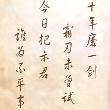 十年磨一劍
霜刃未曾試
今日把示君
誰為不平事